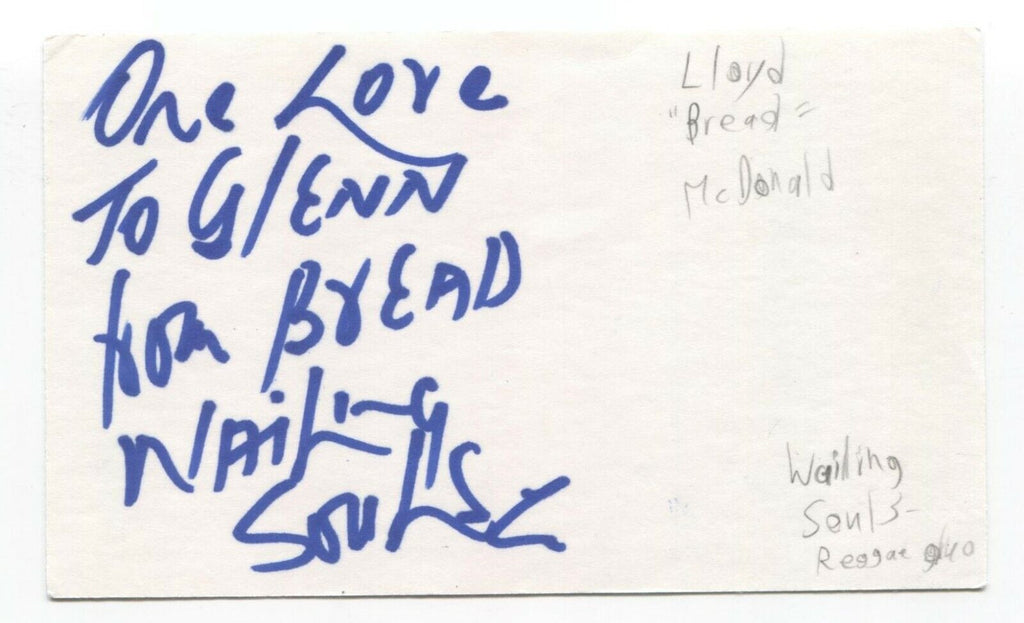 One Love
To GlENN
from BrEAD
WAiLiNg
SouLS
Lloyd
"Bread"
McDonald
Wailing
Souls-
Reggae duo